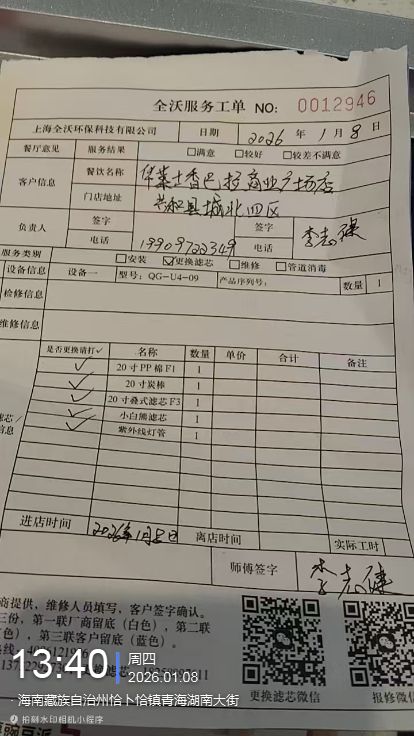 全沃服务工单 NO: 0012946
上海全沃环保科技有限公司 日期 2026 年 1 月 8 日
餐厅意见 服务结果 □满意 □较好 □较差不满意
客户信息 餐饮名称 华莱士香巴拉商业广场店
门店地址 共和县城北四区
负责人 签字 签字 李志禄
电话 19909722349 电话
服务类别 □安装 ☑更换滤芯 □维修 □管道消毒
设备信息 设备一 型号: QG-U4-09 产品序列号: 数量 1
检修信息
维修信息
是否更换请打✓ 名称 数量 单价 合计 备注
✓ 20寸PP棉F1 1
✓ 20寸炭棒 1
✓ 20寸叠式滤芯F3 1
✓ 小白熊滤芯 1
✓ 紫外线灯管 1
滤芯/
信息
进店时间 2026年1月8日 离店时间 实际工时
师傅签字
商提供、维修人员填写、客户签字确认。
三份,第一联厂商留底(白色),第二联
色),第三联客户留底(蓝色)。
更换滤芯微信 报修微信
13:40 周四
2026.01.08
·海南藏族自治州恰卜恰镇青海湖南大街
拍刻水印相机小程序